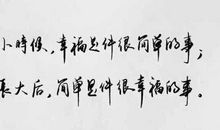 小时候，幸福是件很简单的事；
长大后，简单是件很幸福的事。